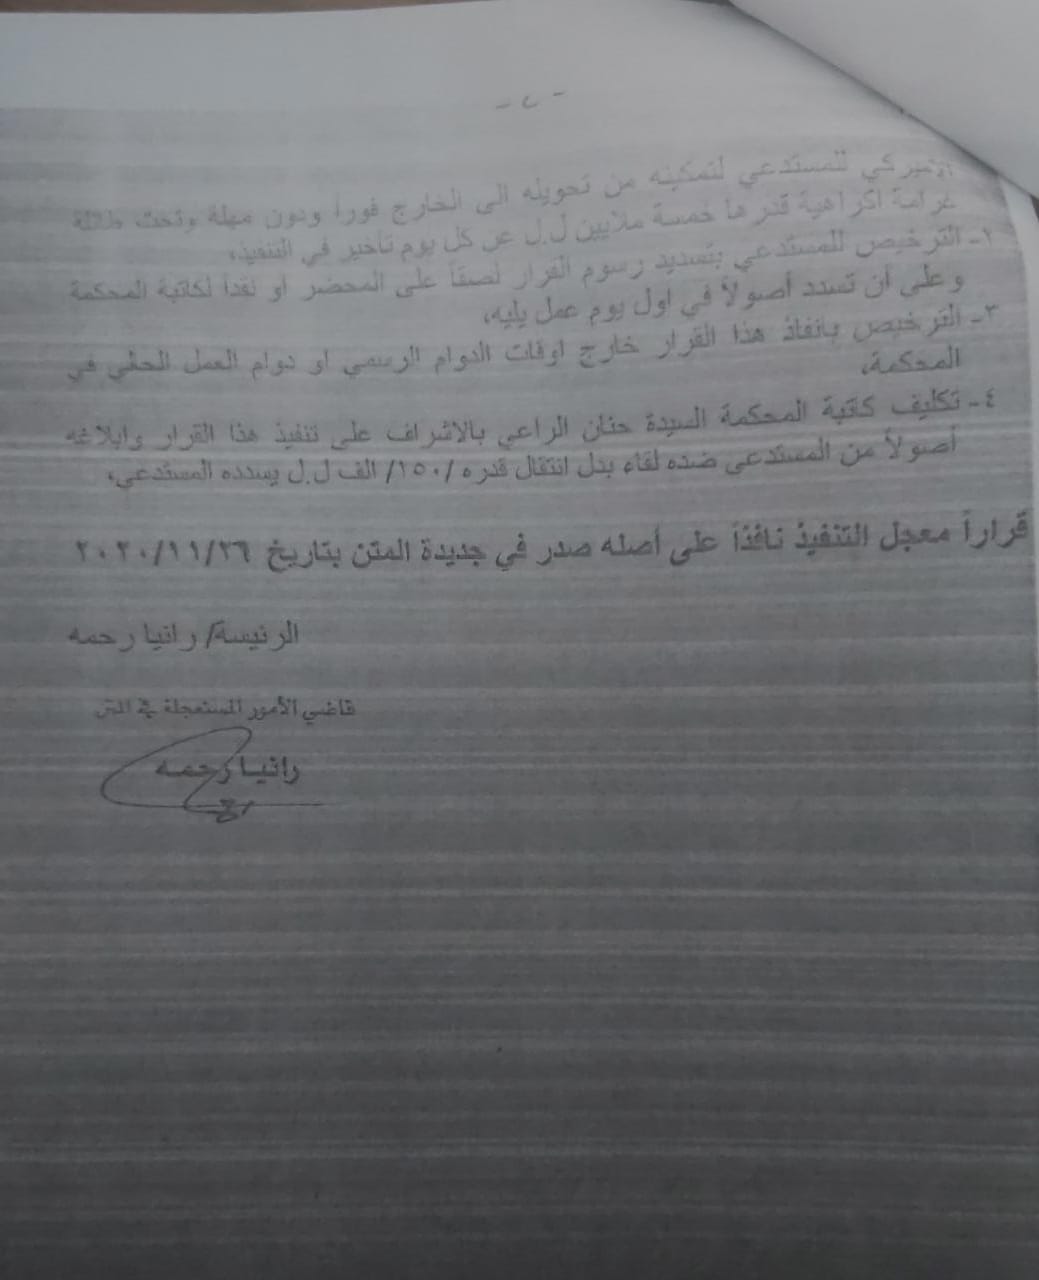 - ٢ -
الأميركي للمستدعي لتمكينه من تحويله الى الخارج فوراً ودون مهلة وتحت طائلة
غرامة اكراهية قدرها خمسة ملايين ل.ل عن كل يوم تأخير في التنفيذ،
٢- الترخيص للمستدعي بتسديد رسوم القرار لصقاً على المحضر او نقداً لكاتبة المحكمة
و على أن تسدد أصولاً في اول يوم عمل يليه،
٣- الترخيص بانفاذ هذا القرار خارج اوقات الدوام الرسمي او دوام العمل الحالي في
المحكمة،
٤- تكليف كاتبة المحكمة السيدة حنان الراعي بالاشراف على تنفيذ هذا القرار وابلاغه
أصولاً من المستدعى ضده لقاء بدل انتقال قدره /١٥٠/ الف ل.ل يسدده المستدعي،
قراراً معجل التنفيذ نافذاً على أصله صدر في جديدة المتن بتاريخ ٢٠٢٠/١١/٢٦
الرئيسة/ رانيا رحمه
قاضي الأمور المستعجلة في المتن
رانيا رحمه